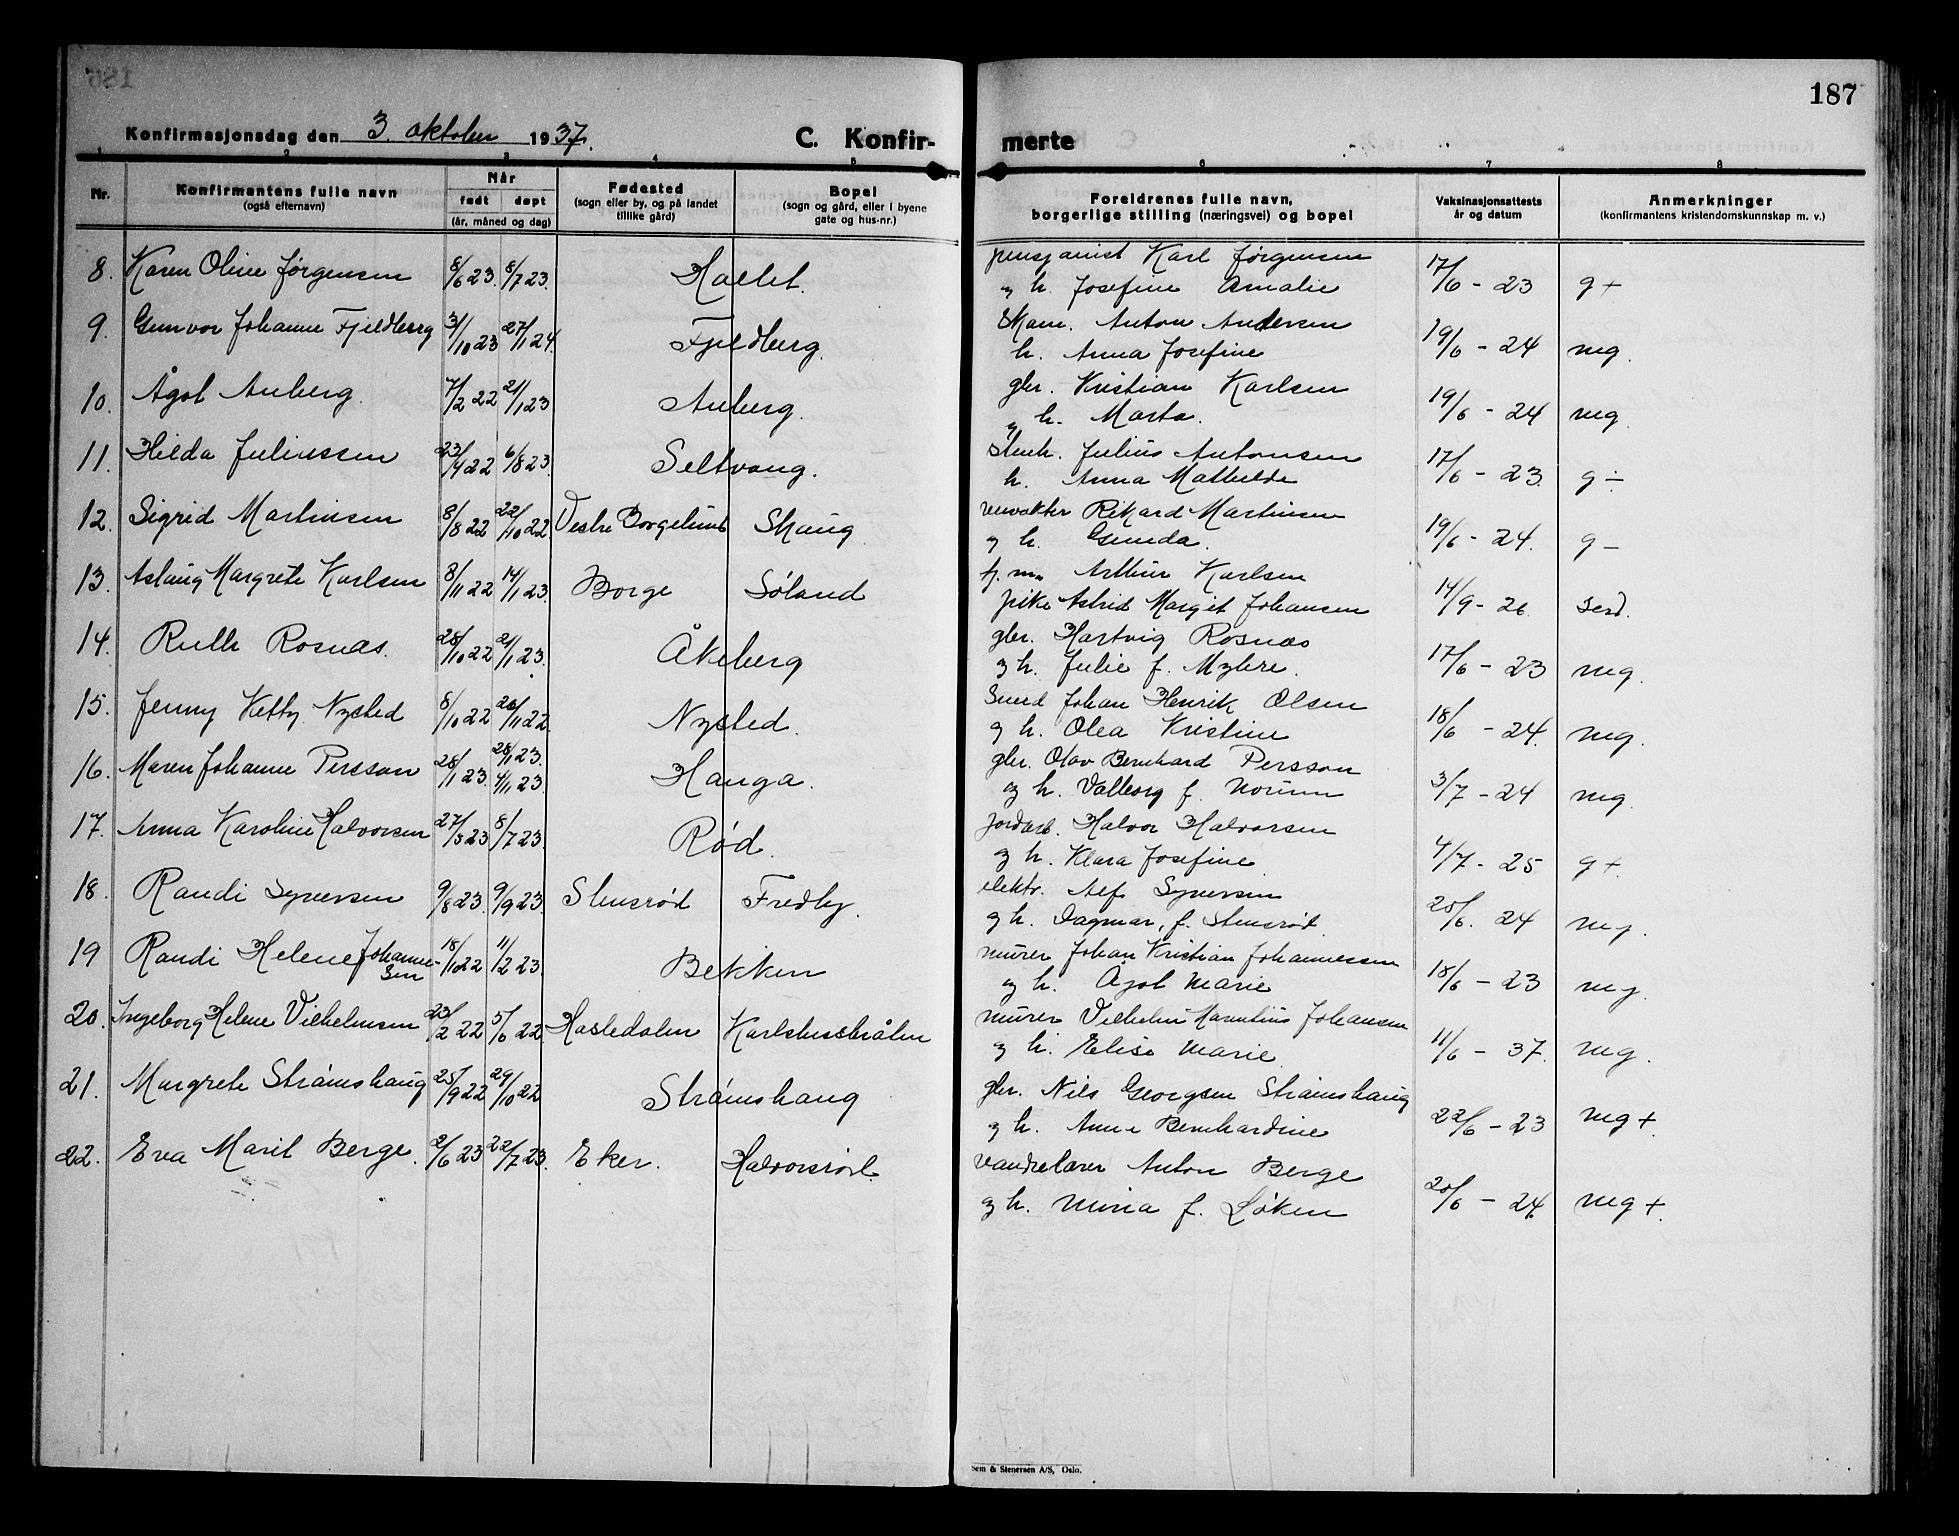 187
Konfirmasjonsdag den 3. oktober 1937.
C. Konfir-
merte
1 2 3 4 5 6 7 8
Nr.
Konfirmantens fulle navn
(også efternavn)
Når
født døpt
(år, måned og dag)
Fødested
(sogn eller by, og på landet
tillike gård)
Bopel
(sogn og gård, eller i byene
gate og hus-nr.)
Foreldrenes fulle navn,
borgerlige stilling (næringsvei) og bopel
Vaksinasjonsattests
år og datum
Anmerkninger
(konfirmantens kristendomskunnskap m. v.)
8. Karen Oline Jørgensen 8/6 23. 8/7 23. pensjonist Karl Jørgensen
og h. Josefine Amalie 17/6 - 23 g +
9. Gunvor Johanne Fjeldberg 3/10 23 27/1 24. Fjeldberg. Anton Andersen
h. Anna Josefine 19/6 - 24 mg.
10. Ågot Auberg. 7/2 22 21/1 23 Auberg. gbr. Kristian Karlsen
og h. Marta. 19/6 - 24 mg
11. Hilda Juliussen 23/4 22 6/8 23. Seltvang. Stenh. Julius Antonsen
h. Anna Mathilde 17/6 - 23. g ÷
12. Sigrid Martinsen 8/8 22 22/10 22 Vestre Borgelund Skaug veivokter Rikard Martinsen
og h. Gunda. 19/6 - 24. g -
13. Aslaug Margrete Karlsen 8/11 22 14/1 23. Borge Søland Arthur Karlsen
pike Astrid Margit Johansen 14/9 - 26
14. Ruth Rosnæs. 28/10 22 21/1 23. Åkeberg gbr. Hartvig Rosnæs
og h. Julie f. Myhre. 17/6 - 23 mg.
15. Jenny Ketty Nysted 8/10 22 26/11 22. Nysted. Smed Johan Henrik Olsen
og h. Olea Kristine 18/6 - 24. mg.
16. Maren Johanne Persson 28/1 23. 28/1 23.
4/11 23 Hauga. gbr. Olav Bernhard Persson
og h. Valborg f. Norum 3/7 - 24 mg.
17. Anna Karoline Halvorsen 27/5 23 8/7 23. Rød. jordarb. Halvor Halvorsen
og h. Klara Josefine 4/7 - 25 g +
18. Randi Syversen 9/8 23. 9/9 23. Stensrød Fredly. elektr. Alf Syversen
og h. Dagmar, f. Stensrød 25/6. 24 mg.
19 Randi Helene Johanne-
sen 18/10 22 11/2 23. Bekken murer Johan Kristian Johannessen
og h. Ågot Marie 18/6 - 23 mg.
20. Ingeborg Helene Vilhelmsen 23/2 22 5/6 22 Hasledalen Karlshusstrålen murer Vilhelm Marntius Johansen
og h. Elise Marie 11/6 - 37. mg.
21. Margrete Strømshaug 25/9 22 29/10 22 Strømshaug gbr. Nils Georgsen Strømshaug
og h. Anne Bernhardine 22/6 - 23 mg +
22. Eva Marit Berge. 2/6 23 22/7 23. Eker. Halvorsrød. vandrelærer Anton Berge
og h. Mina f. Løken 20/6 - 24 mg +.
Sem & Stenersen A/S, Oslo.